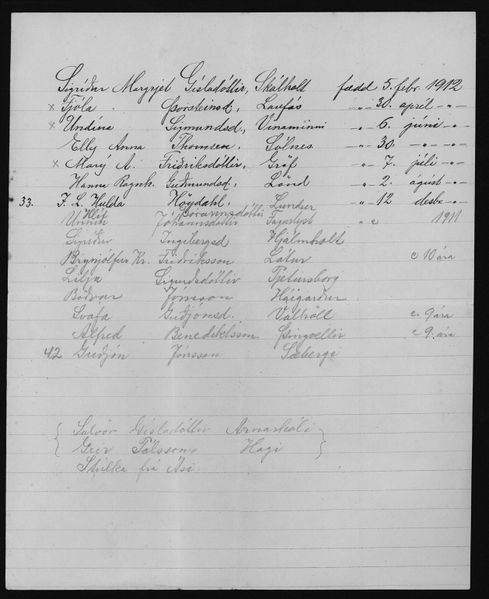 Sigríður Margrjet Gísladóttir, Skálholt fædd 5. febr. 1912
× Fjóla . Þorsteinsd, Laufás „ „ 30. apríl „ „
× Undína Sigmundsd, Vinaminni „ „ 6. júní „ „
Elly Anna Thomsen, Sólnes „ „ 30. „ „
× Marý A. Friðriksdóttir, Gröf „ „ 7. júlí „ „
Hanna Ragnh. Guðmundsd, Lönd „ „ 2. ágúst „ „
33. F. L. Hulda Höydahl, „ „ 12 desbr „ „
Hlíf Þórarinsdóttir Lundur
Unnur Jóhannsdóttir „ c 1911
Sigríður Ingibergsd Hjálmholt
Brynjólfur Kr. Friðriksson Látur c 10 ára
Lilja Sigurðsdóttir Pjetursborg
Böðvar Jónsson Hágarður
Svafa Guðjónsd. Valhöll c. 9 ára
Alfred Benediktsson Þingvellir c 9. ára
42 Guðjón Jónsson Sæberg
{ Salvör Gísladóttir }
{ Geir Pálsson Hagi }
Stúlka frá Ási.